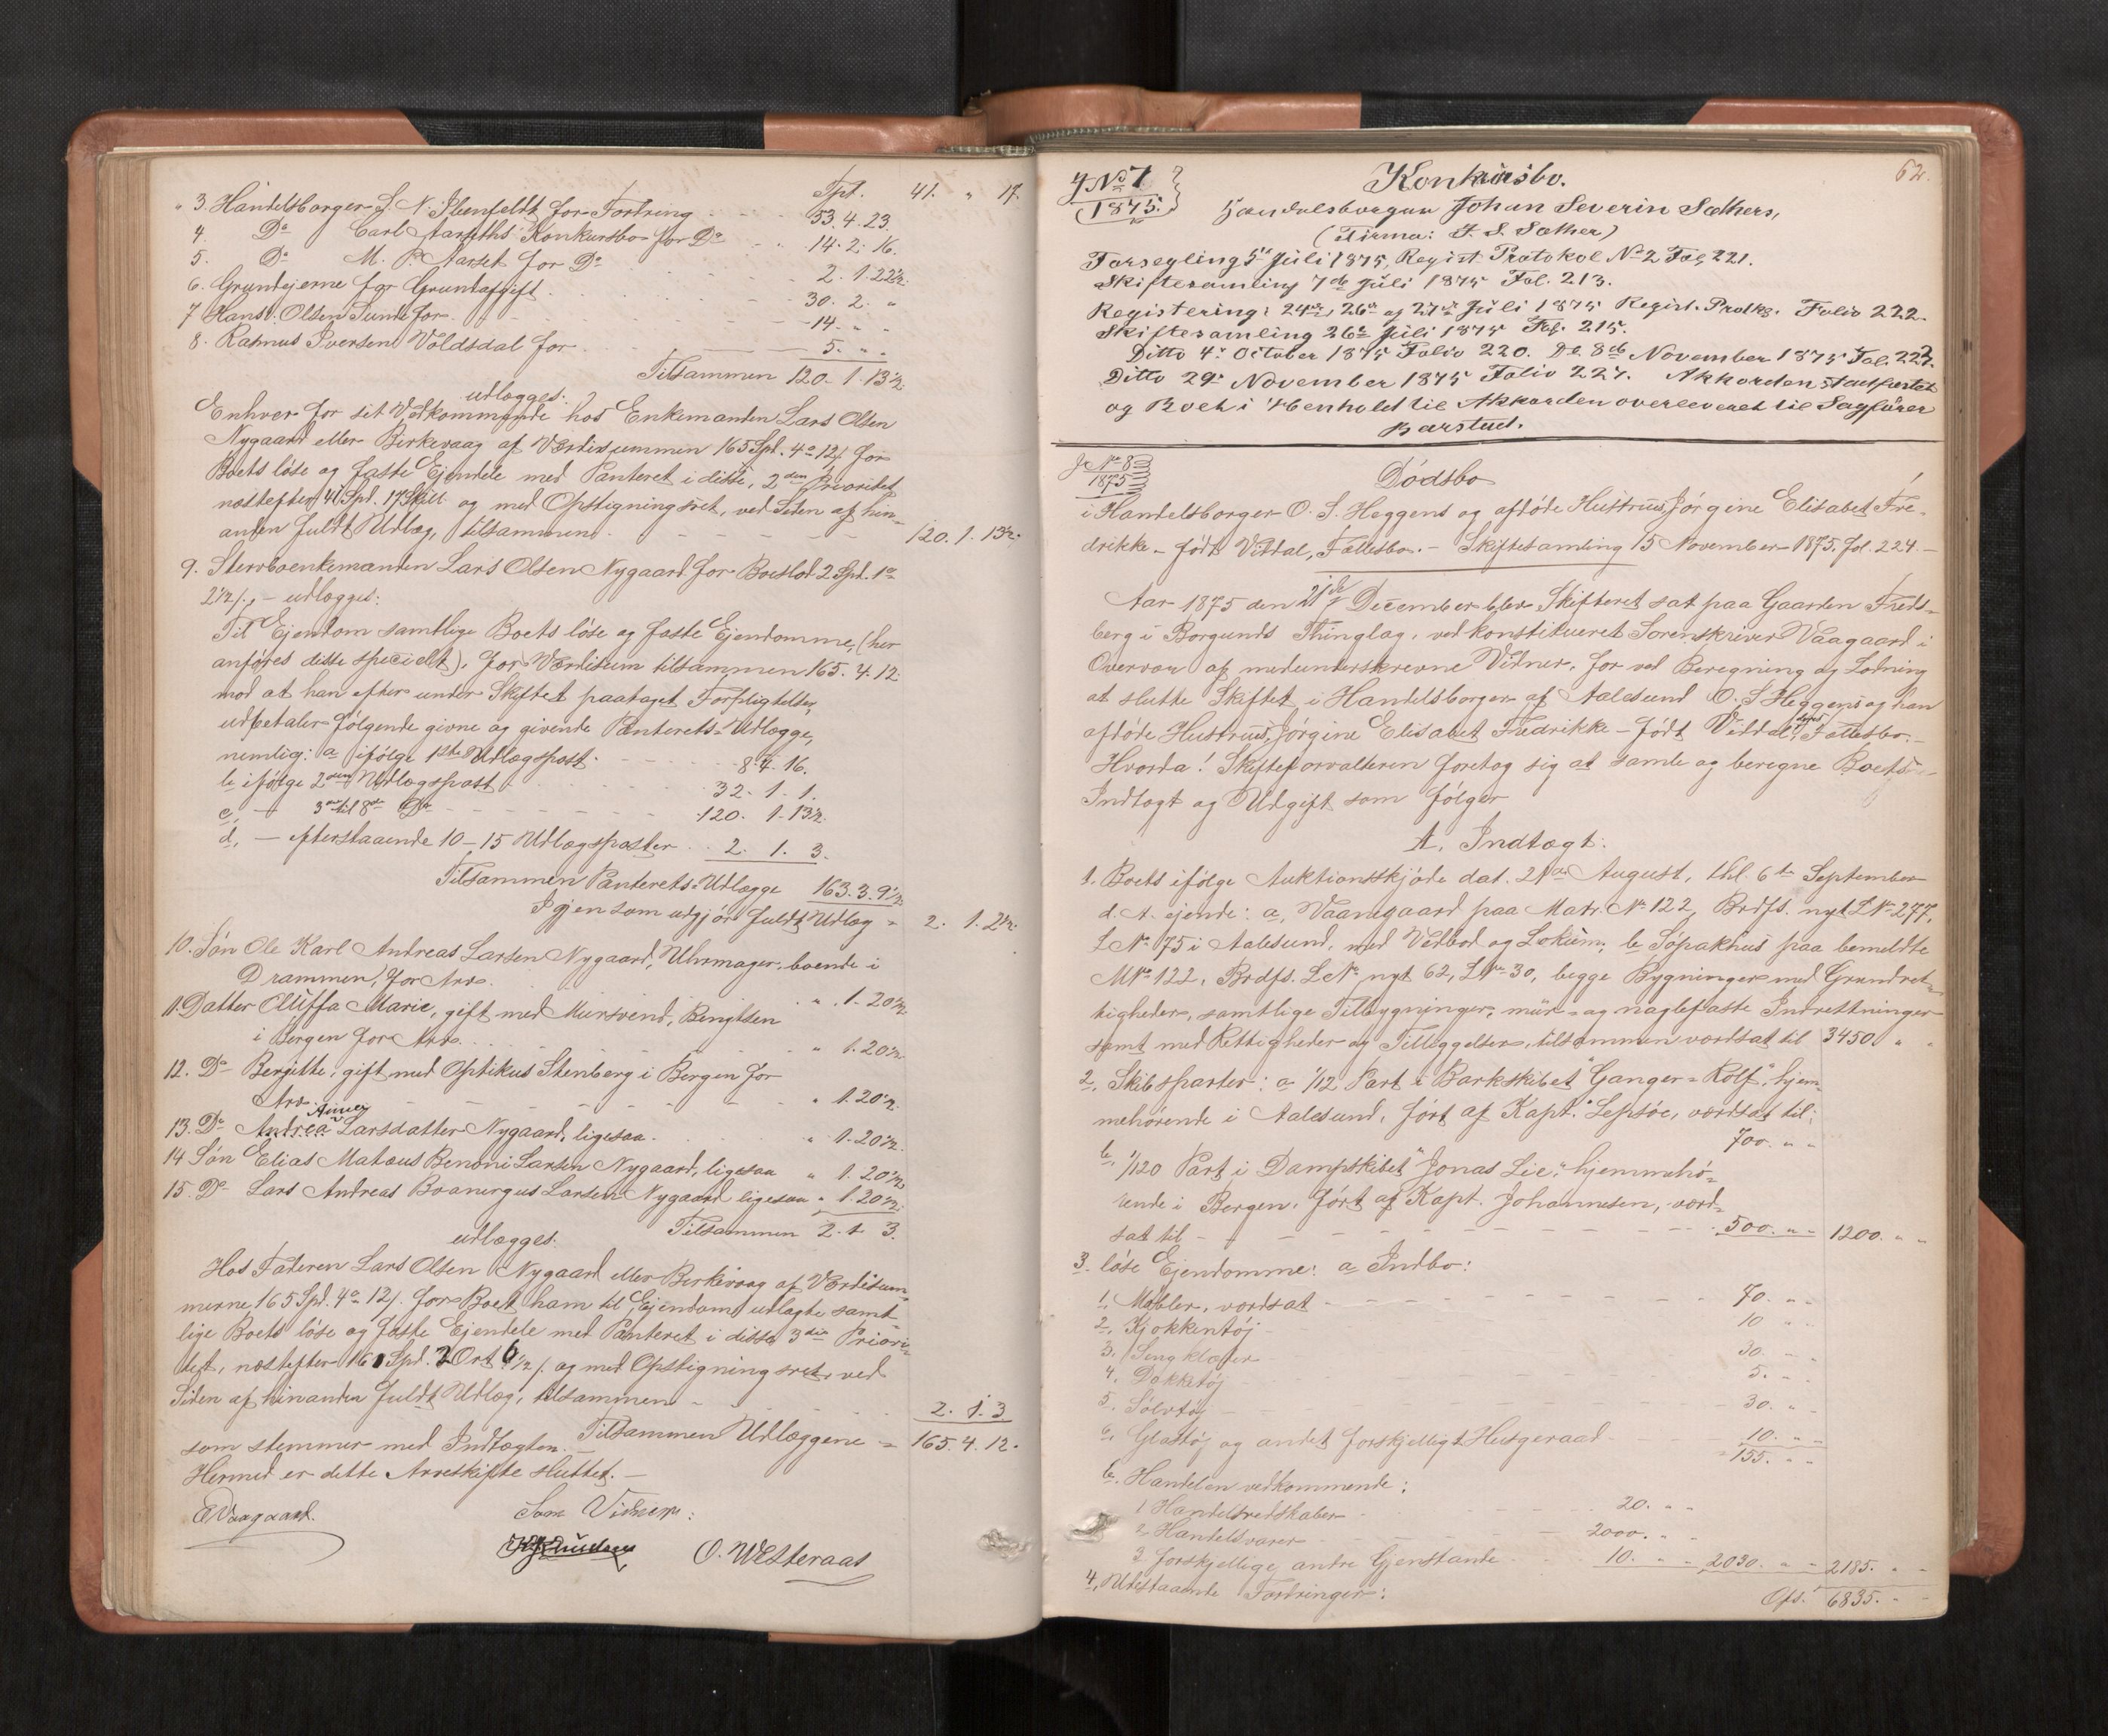 Tpt. 41. " 17.
" 3. Handelsborger L. N. Ibenfeldt for Fordring 53. 4. 23.
4. Do Carl Aarseths Konkursbo for Do 14. 2. 16.
5. Do M. P. Aarset for Do 2. 1. 22½.
6. Grundejerne for Grundafgift 30. 2. "
7 Hans Olsen Sunde for 14. " "
8. Rasmus Iversen Voldsdal for 5. " "
Tilsammen 120. 1. 13½
udlægges:
Enhver for sit Vedkommende hos Enkemanden Lars Olsen
Nygaard eller Birkevaag af Værdisummen 165 Spd. 4o 12/ for
Boets løse og faste Ejendele med Panteret i disse, 2den Prioritet
næstefter 41 Spd. 17 Skill. og med Opstigningsret, ved Siden af hin-
anden fuldt Udlæg, tilsammen 120. 1. 13½.
9. Stervboenkemanden Lars Olsen Nygaard for Boeslod 2 Spd. 1o
2½/., – udlægges:
Til Ejendom samtlige Boets løse og faste Ejendomme, (her
anføres disse specielt), for Værdisum tilsammen 165. 4. 12.
mod at han efter under Skiftet paataget Forpligtelse,
udbetaler følgende givne og givende Panterets-Udlægge,
nemlig: a ifølge 1ste Udlægspost 8. 4. 16.
b ifølge 2den Udlægspost 32. 1. 1.
c, – 3die til 8de Do 120. 1. 13½.
d, – efterstaaende 10–15 Udlægsposter 2. 1. 3.
Tilsammen Panterets-Udlægge 163. 3. 9½
Igjen som udgjør fuldt Udlæg = 2. 1. 2½.
10. Søn Ole Karl Andreas Larsen Nygaard, Uhrmager, boende i
Drammen, for Arv. " 1. 20½
11. Datter Oliffa Marie, gift med Mursvend, Bengtsen
i Bergen for Arv " 1. 20½.
12. Do Bergitte, gift med Optikus Stenberg i Bergen for
Arv. " 1. 20½.
13. Do Andrea Larsdatter Nygaard, ligesaa. " 1. 20½
14 Søn Elias Matæus Benoni Larsen Nygaard, ligesaa " 1. 20½
15. Do Lars Andreas Boanerges Larsen Nygaard ligesaa " 1. 20½
Tilsammen 2. 1. 3.
udlægges.
Hos Faderen Lars Olsen Nygaard eller Birkevaag af Værdisum-
merne 165 Spd. 4o 12/. for Boet, ham til Ejendom udlagte samt-
lige Boets løse og faste Ejendele med Panteret i disse 3die Priori-
tet, næstefter 161 Spd. 2 Ort 6½/. og med Opstigningsret, ved
Siden af hinanden fuldt Udlæg, tilsammen – 2. 1. 3
Tilsammen Udlæggene = 165. 4. 12.
som stemmer med Indtægten. –
Hermed er dette Arveskifte sluttet. –
Vaagaard.
Som Vidner:
O. Westeraas
62.
No 7.
1875.
Konkursbo.
Handelsborger Johan Severin Sæthers,
(Firma: J. S. Sæther)
Forsegling 5te Juli 1875, Regist Protokol No 2 Fol. 221.
Skiftesamling 7de Juli 1875 Fol. 213.
Registering: 24de, 26de og 27de Juli 1875 Regist. Protk. Folio 222.
Skiftesamling 26de Juli 1875 Fol. 215.
Ditto 4de October 1875 Folio 220. Do 8de November 1875 Fol. 223.
Ditto 29de November 1875 Folio 227. Akkorden stadfæstet
og Boet i Henhold til Akkorden overleveret til Sagfører
Barstad.
No 8
1875
Dødsbo
i Handelsborger O. S. Heggens og afdøde Hustrus, Jørgine Elisabet Fre-
drikke – født Viddal, Fællesbo. – Skiftesamling 15 November 1875. Fol. 224. –
Aar 1875 den 21de December blev Skifteret sat paa Gaarden Freds-
berg i Borgunds Thinglag, ved konstitueret Sorenskriver Vaagaard i
Overvær af medunderskrevne Vidner, for ved Beregning og Lodning
at slutte Skiftet i Handelsborger af Aalesund O. S. Heggens og han
afdøde Hustrus, Jørgine Elisabet Fredrikke – født Viddal, Fællesbo. –
Hvorda! Skifteforvalteren foretog sig at samle og beregne Boets
Indtægt og Udgift som følger
A. Indtægt:
1. Boets ifølge Auktionsskjøde dat. 21de August, thl. 6te September
d. A. ejende: a, Vaanegaard paa Matr. No 122, Brdfs. nyt L No 277,
L No 75 i Aalesund, med Vedbod og Lokum; b Søpakhus paa bemeldte
M No 122, Brdfs. L No nyt 62, L No 30, begge Bygninger med Grundret-
tigheder, samtlige Tilbygninger, mur- og naglefaste Indretninger
samt med Rettigheder og Tilliggelser, tilsammen værdsat til 3450. " "
2. Skibsparter: a 1/12 Part i Barkskibet "Ganger-Rolf", hjem-
mehørende i Aalesund, ført af Kapt. Lepsøe, værdsat til: 700. " "
b, 1/120 Part i Dampskibet "Jonas Lie", hjemmehø-
rende i Bergen, ført af Kapt. Johannesen, værd-
sat til – 500. " " 1200. " "
3. løse Ejendomme: a Indbo:
1. Møbler, værdsat 70. " "
2, Kjøkkentøj 10 " "
3. Sengklæder 30. " "
4. Dækketøj 5. " "
5. Sølvtøj 30. " "
6, Glastøj og andet forskjelligt Husgeraad 10. " "
155. " "
b. Handelen vedkommende:
1 Handelsredskaber 20. " "
2 Handelsvarer 2000. " "
3. forskjellige andre Gjenstande 10. " " 2030. " " 2185. " "
4, Udestaaende Fordringer:
Ofs. 6835. " "